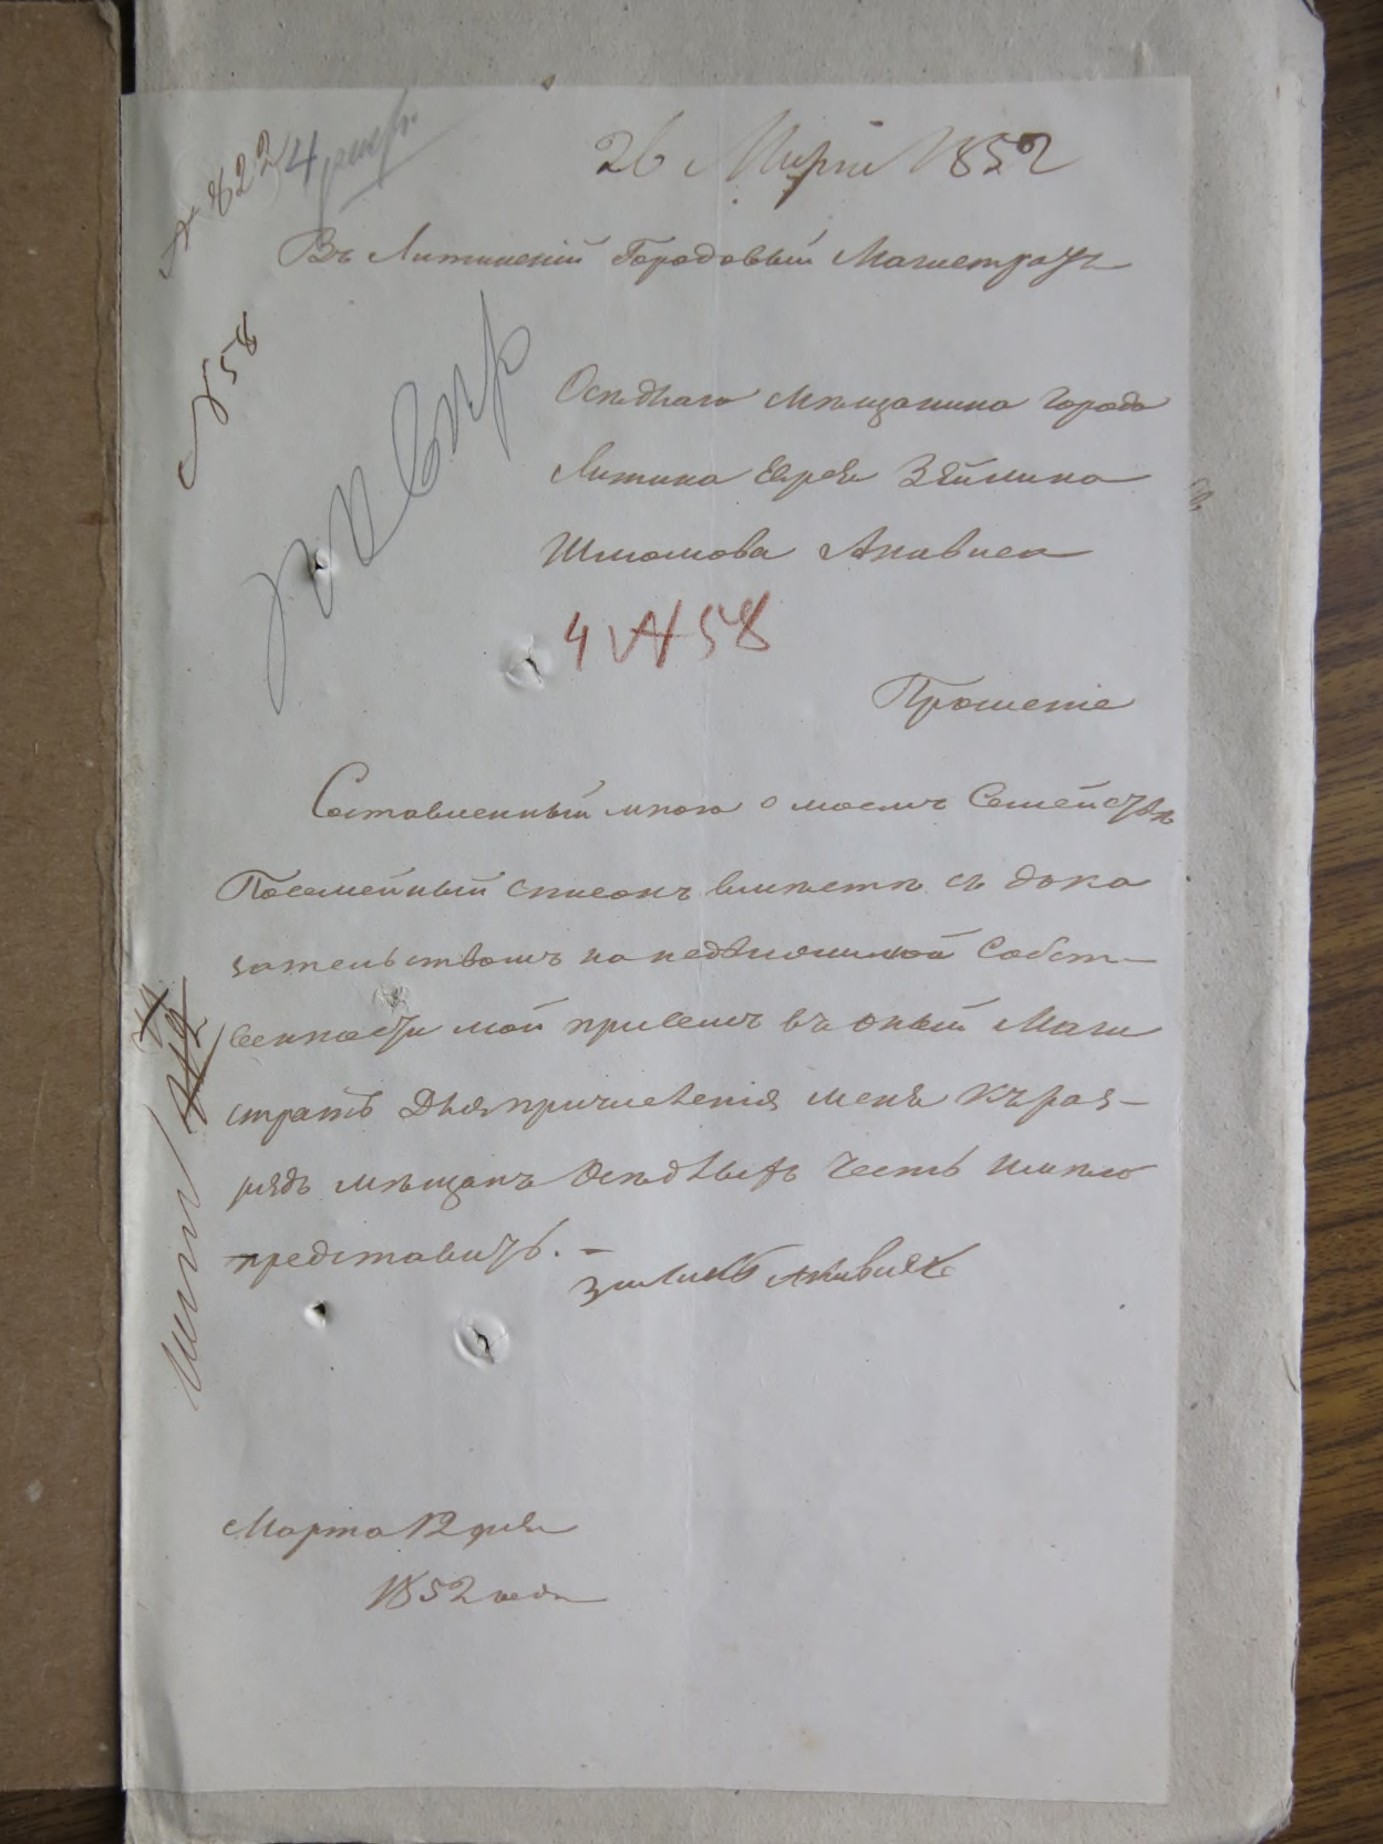 № 822
26 Марта 1852
Въ Литинскій Городовый Магистратъ
№ 58
Осѣдлаго мѣщанина города
Литина Еврея Зейлика
Шлiомова Акивиса
4 № 58
Прошеніе
Составленный мною о моемъ Семействѣ
Посемейный списокъ вмѣстѣ съ дока
зательствомъ на недвижимой Собст-
венности мой присемъ въ оный Маги
стратъ Для причисленія меня къ раз-
ряду мѣщанъ Осѣдлыхъ Честь имѣю
представить. -
Зейликъ Акивисъ
Марта 12 дня
1852 года